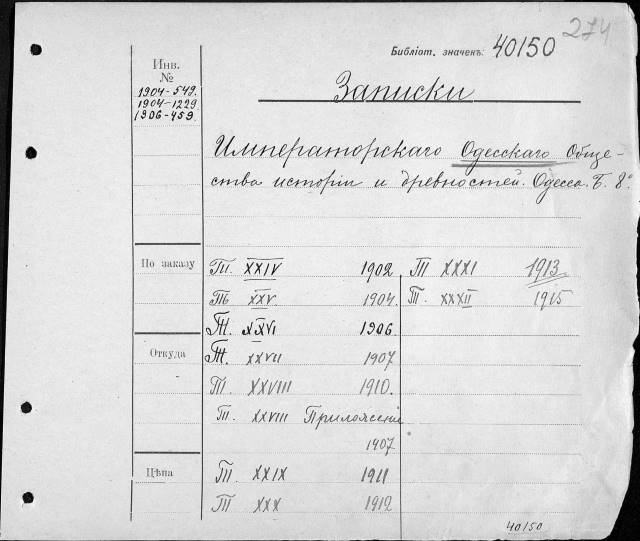 274
Библіот. значенъ: 40150
Инв.
№
1904-549.
1904-1229.
1906-459.
Записки
Императорскаго Одесскаго Обще-
ства исторіи и древностей. Одесса. Б. 8°.
По заказу
Откуда
Цѣна
Т. XXIV 1902
Т. XXV 1904.
Т. XXVI 1906.
Т. XXVII 1907
Т. XXVIII 1910.
Т. XXVIII Приложеніе
1907
Т. XXIX 1911
Т. XXX 1912
Т. XXXI 1913
Т. XXXII 1915
40150